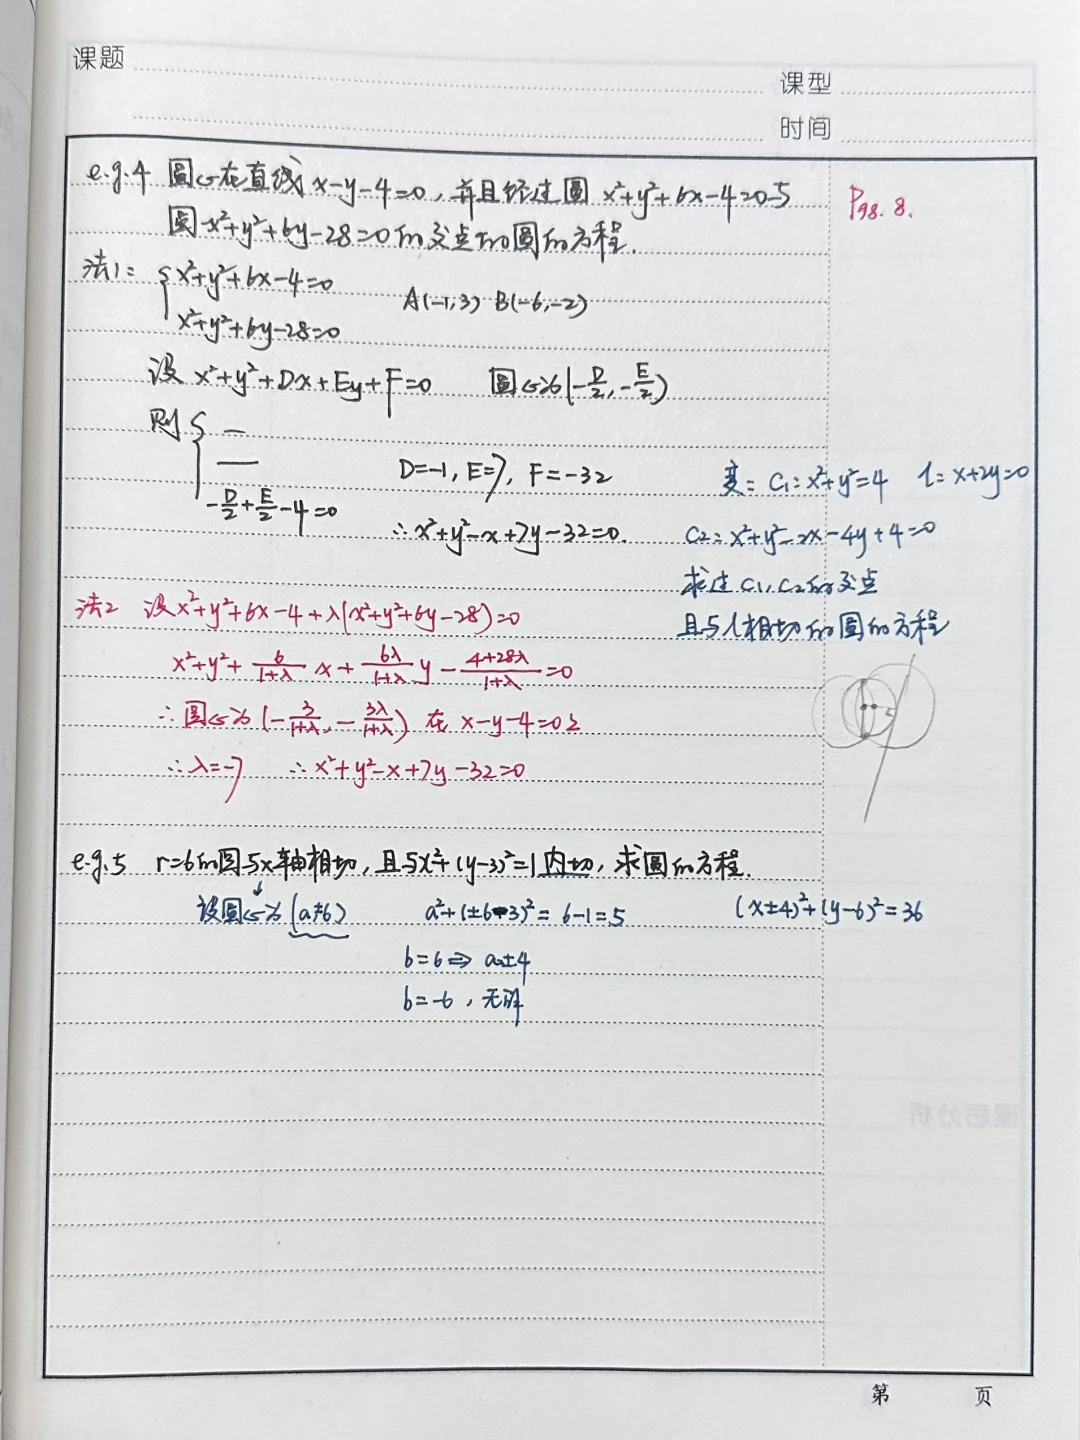 课题
课型
时间
e.g.4 圆心在直线 x-y-4=0, 并且经过圆 x²+y²+6x-4=0与
圆 x²+y²+6y-28=0 的交点的圆的方程.
P98. 8.
法1: { x²+y²+6x-4=0
x²+y²+6y-28=0
A(-1,3) B(-6,-2)
设 x²+y²+Dx+Ey+F=0 圆心为(-D/2, -E/2)
则 { —
—
-D/2+E/2-4=0
D=-1, E=7, F=-32
∴ x²+y²-x+7y-32=0.
变: C1: x²+y²=4 l: x+2y=0
C2: x²+y²-2x-4y+4=0
求过 C1, C2的交点
且与l相切的圆的方程
法2 设x²+y²+6x-4+λ(x²+y²+6y-28)=0
x²+y²+ 6/(1+λ) x+ 6λ/(1+λ) y - (4+28λ)/(1+λ) =0
∴ 圆心为 (- 3/(1+λ), - 3λ/(1+λ)) 在 x-y-4=0上
∴ λ=-7 ∴ x²+y²-x+7y-32=0
e.g.5 r=6的圆与x轴相切, 且与x²+(y-3)²=1内切, 求圆的方程.
设圆心为(a,±6) a²+(±6-3)²= 6-1=5 (x±4)²+(y-6)²=36
b=6 ⇒ a=±4
b=-6, 无解
课后分析
第 页